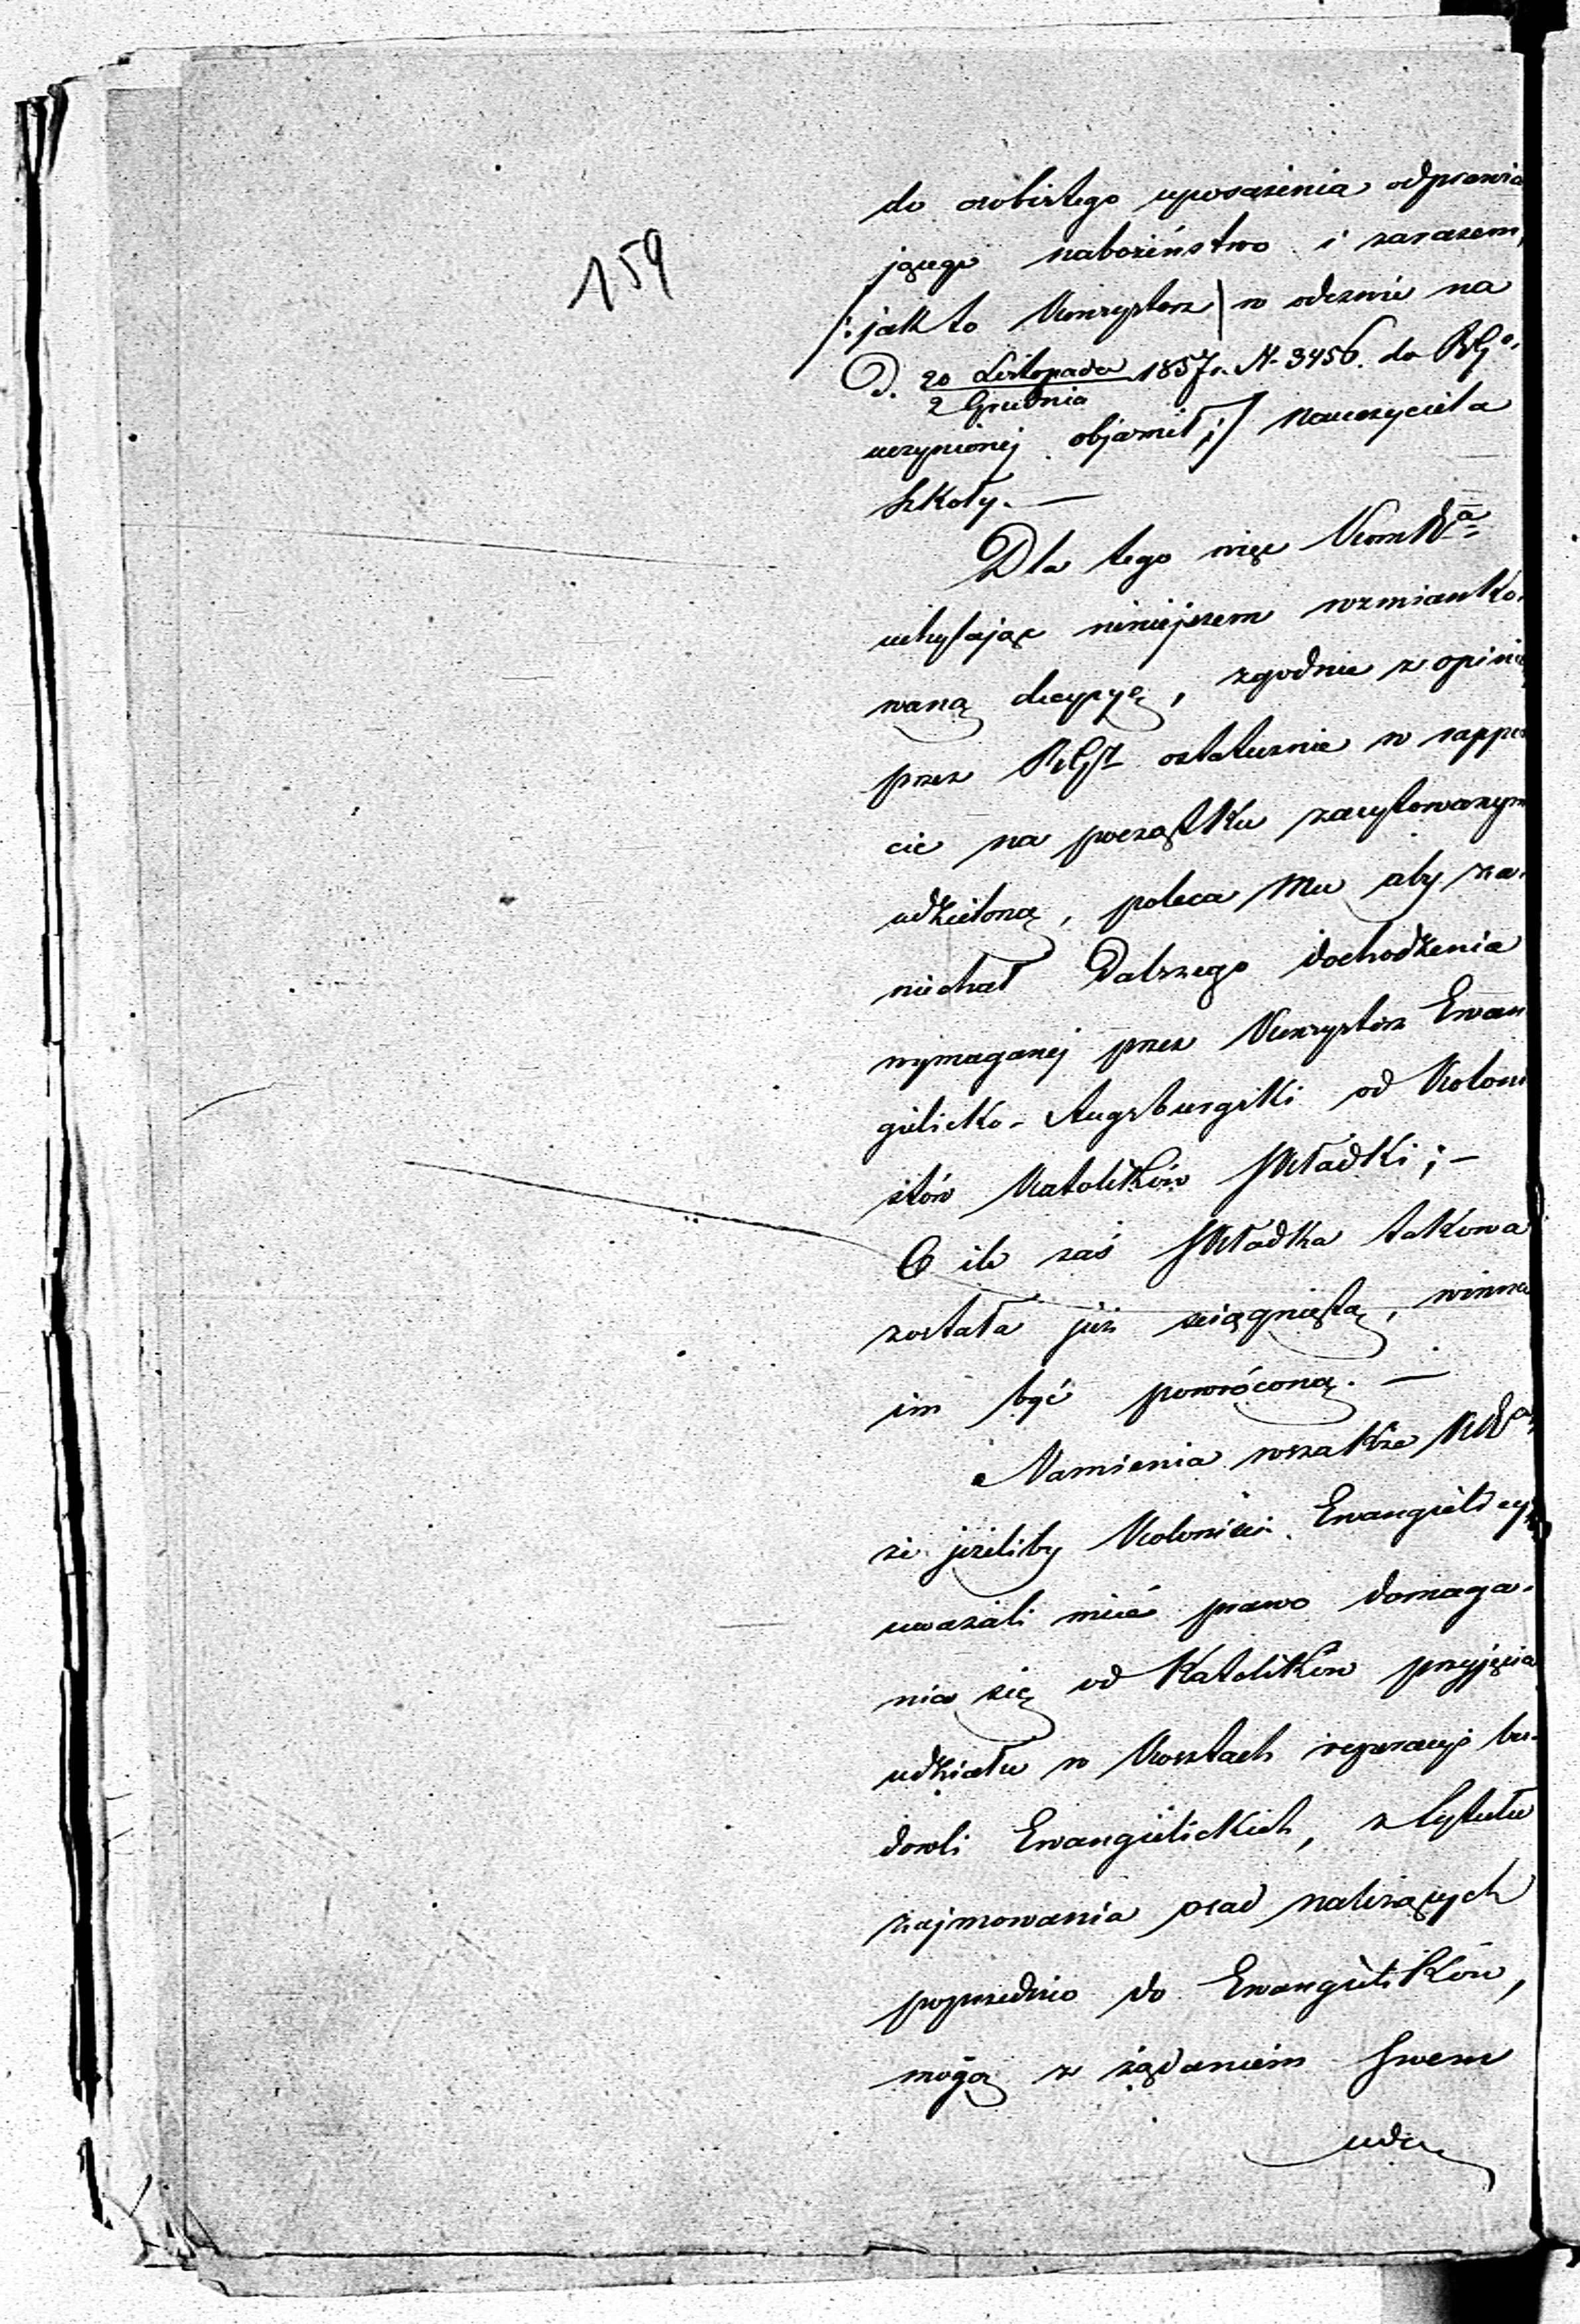 159
do osobistego uposażenia odprawia
jącego nabożeństwo i zarazem,
/: jak to Konsystorz w odezwie na
D. 20 Listopada / 2 Grudnia 1857 r. N. 3456. do RGo.
uczynionej objawił :/ nauczyciela
szkoły. —
Dla tego więc KomRa
uchylając niniejszem wzmianko-
waną decyzyę, zgodnie z opinią
przez RGł ostatecznie w rappor
cie na początku zacytowanym
udzieloną, poleca Mu aby za-
niechał dalszego dochodzenia
wymaganej przez Konsystorz Ewan
gielicko-Augsburgski od Koloni
stów Katolików składki; —
O ile zaś składka takowa
została już ściągniętą, winna
im być powróconą. —
Namienia wszakże KRa,
że jeżeliby Koloniści Ewangielicy
uważali mieć prawo domaga-
nia się od Katolików przyjęcia
udziału w kosztach reperacyi bu-
dowli Ewangielickich, z tytułu
zajmowania osad należących
poprzednio do Ewangielików,
mogą z żądaniem swem
udać